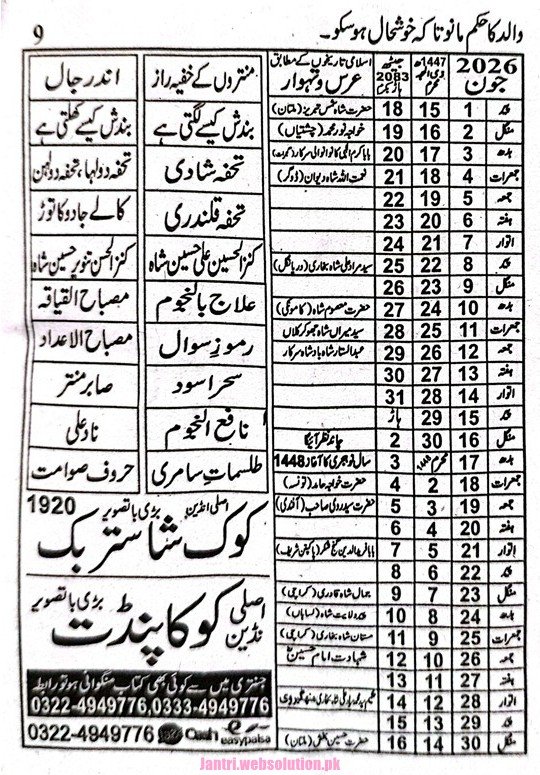 والد کا حکم مانو تاکہ خوشحال ہو سکو۔
9
2026 جون | 1447ھ ذی الحجہ محرم | جیٹھ 2083 ہاڑ بکرمی | اسلامی تاریخوں کے مطابق عرس و تہوار
1 | 15 | 18 | حضرت شاہ شمس تبریز (ملتان)
منگل 2 | 16 | 19 | خواجہ نور محمد (چشتیاں)
بدھ 3 | 17 | 20
جمعرات 4 | 18 | 21 | نعمت اللہ شاہ دیوان
جمعہ 5 | 19 | 22
ہفتہ 6 | 20 | 23
اتوار 7 | 21 | 24
8 | 22 | 25 | سید مراد علی شاہ بخاری
منگل 9 | 23 | 26
بدھ 10 | 24 | 27 | حضرت معصوم شاہ (کامونکی)
جمعرات 11 | 25 | 28 | سید میراں شاہ بھوکر کلاں
جمعہ 12 | 26 | 29 | عبدالستار شاہ بادشاہ سرکار
ہفتہ 13 | 27 | 30
اتوار 14 | 28 | 31
15 | 29 | ہاڑ
منگل 16 | 30 | 2 | چاند نظر آئیگا
بدھ 17 | محرم 1448 | 3 | سال نو ہجری کا آغاز 1448
جمعرات 18 | 2 | 4 | حضرت خواجہ حامد (تونسہ)
جمعہ 19 | 3 | 5
ہفتہ 20 | 4 | 6
اتوار 21 | 5 | 7 | بابا فرید الدین گنج شکر (پاکپتن شریف)
22 | 6 | 8
منگل 23 | 7 | 9 | جمال شاہ قادری (کراچی)
بدھ 24 | 8 | 10
جمعرات 25 | 9 | 11 | مستان شاہ بخاری (کراچی)
جمعہ 26 | 10 | 12 | شہادت امام حسینؓ
ہفتہ 27 | 11 | 13
اتوار 28 | 12 | 14
29 | 13 | 15
منگل 30 | 14 | 16 | (ملتان)
منتروں کے خفیہ راز | اندر جال
بندش کیسے لگتی ہے | بندش کیسے کھلتی ہے
تحفہ شادی | تحفہ دولہا، تحفہ دولہن
تحفہ قلندری | کالے جادو کا توڑ
کنز الحسین علی حسین شاہ | کنز الحسن تنویر حسین شاہ
علاج بالنجوم | مصباح القیافہ
رموز سوال | مصباح الاعداد
سحر اسود | صابر منتر
نافع النجوم | ناد علی
طلسمات سامری | حروف صوامت
اصلی انڈین بڑی باتصویر 1920
کوک شاستر بک
اصلی انڈین کوکا پنڈت بڑی باتصویر
جنتری میں سے کوئی بھی کتاب منگوانی ہو تو رابطہ
0322-4949776,0333-4949776
0322-4949776 Cash easypaisa
Jantri.websolution.pk